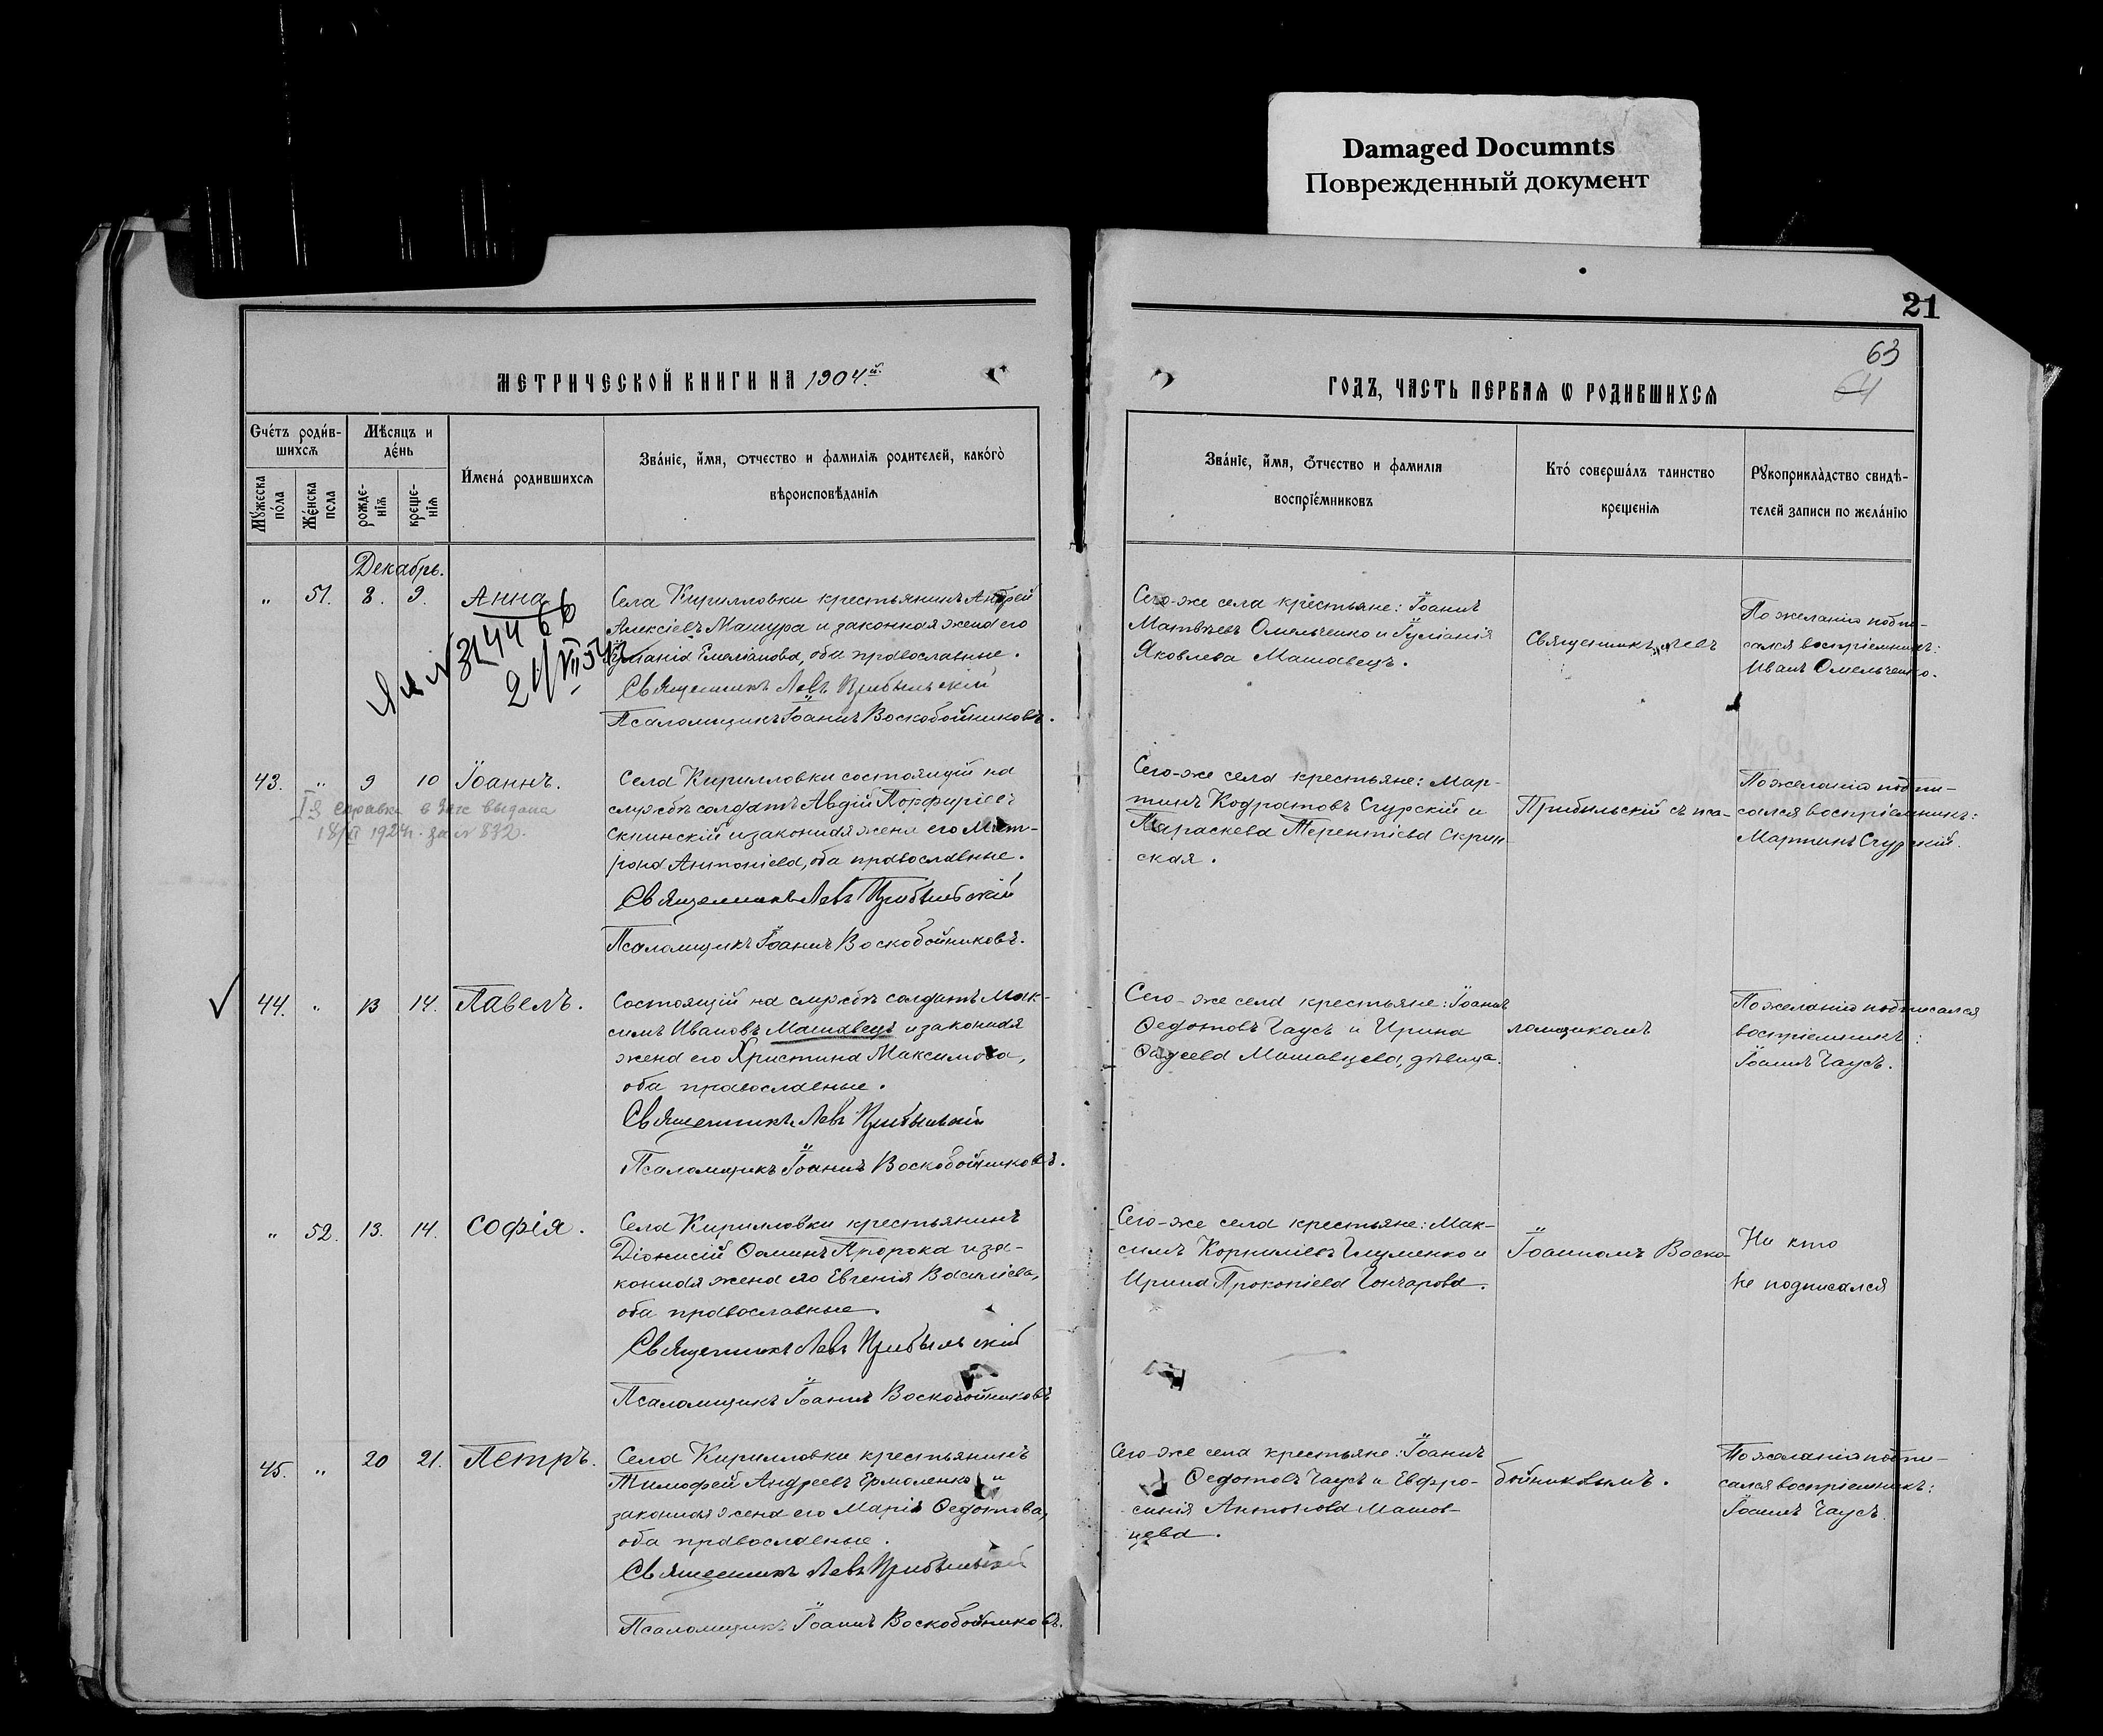 Damaged Documnts
Поврежденный документ
21
63
64
МЕТРИЧЕСКОЙ КНИГИ НА 1904.й
ГОДЪ, ЧАСТЬ ПЕРВАѦ Ѡ РОДИВШИХСѦ
Счéтъ родив-
шихсѧ
Мꙋ́жеска
пóла
Жéнска
пола
Мѣ́сяцъ и
дéнь
рожде-
нїѧ
креще-
нїѧ
И́мена̀ родившихсѧ
Звáнїе, и́мя, ѻтчество и фамилїѧ родителей, какóгѡ
вѣроисповѣ́данїѧ
Звáнїе, и́мя, ѻ́тчество и фамилїѧ
воспрїéмниковъ
Ктó совершáлъ таинство
крещенїѧ
Рꙋкоприклáдство свидѣ-
телей записи по желáнїю
Декабрь.
" 51. 8. 9. Анна
Села Кирилловки крестьянинъ Андрей
Алексіевъ Машура и законная жена его
Іуліанія Емеліанова, оба православные.
Священникъ Левъ Прибыльскій
Псаломщикъ Іоаннъ Воскобойниковъ.
Сего-же села крестьяне: Іоаннъ
Матвѣевъ Омельченко и Іуліанія
Яковлева Машавецъ.
Священникъ Левъ
По желанію подпи-
сался воспріемникъ:
Иванъ Омельченко.
43. " 9 10 Іоаннъ.
справка в Загс выдана
1924 г. за № 832.
Села Кирилловки состоящій на
службѣ солдатъ Авдій Порфиріевъ
Скпинскій и законная жена его Мат-
рона Антоніева, оба православные.
Священникъ Левъ Прибыльскій
Псаломщикъ Іоаннъ Воскобойниковъ.
Сего-же села крестьяне: Мар-
тинъ Кодратовъ Сгурскій и
Параскева Терентіева Скрин-
ская.
Прибыльскій съ пса-
По желанію подпи-
сался воспріемникъ:
Мартинъ Сгурскій.
44. " 13 14. Павелъ.
Состоящій на службѣ солдатъ Мак-
симъ Ивановъ Машавецъ и законная
жена его Христина Максимова,
оба православные.
Священникъ Левъ Прибыльскій
Псаломщикъ Іоаннъ Воскобойниковъ.
Сего-же села крестьяне: Іоаннъ
Ѳедотовъ Чаусъ и Ирина
Ѳадеева Машавцева, дѣвица.
ломщикомъ
По желанію подписался
воспріемникъ:
Іоаннъ Чаусъ.
" 52. 13. 14. Софія.
Села Кирилловки крестьянинъ
Діонисій Ѳоминъ Пророка и за-
конная жена его Евгенія Васильева,
оба православные.
Священникъ Левъ Прибыльскій
Псаломщикъ Іоаннъ Воскобойниковъ
Сего-же села крестьяне: Мак-
симъ Корниліевъ Глуменко и
Ирина Прокопіева Гончарова.
Іоанномъ Воско-
Ни кто
не подписался
45. " 20 21. Петръ.
Села Кирилловки крестьянинъ
Тимофей Андреевъ Ермоленко и
законная жена его Марія Ѳедотова,
оба православные.
Священникъ Левъ Прибыльскій
Псаломщикъ Іоаннъ Воскобойниковъ.
Сего-же села крестьяне: Іоаннъ
Ѳедотовъ Чаусъ и Евфро-
синія Антонова Машав-
цева.
бойниковымъ.
По желанію подпи-
сался воспріемникъ:
Іоаннъ Чаусъ.